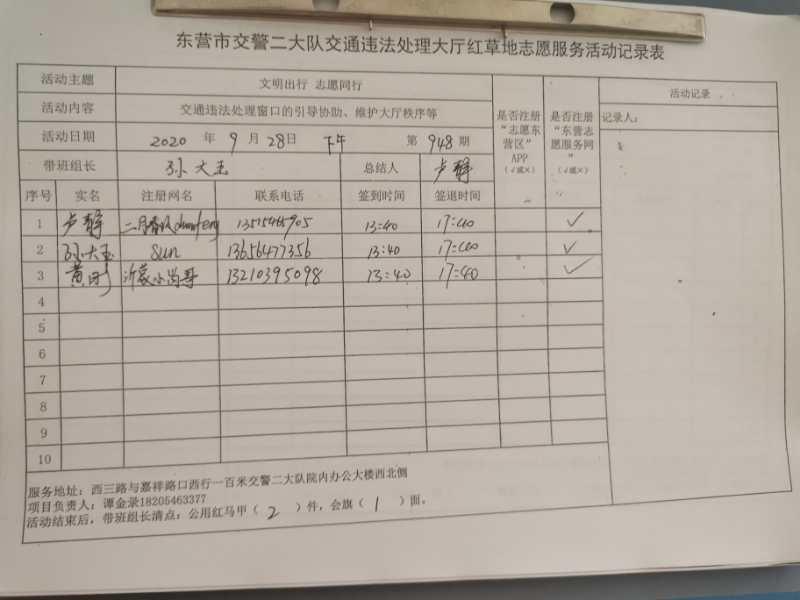 东营市交警二大队交通违法处理大厅红草地志愿服务活动记录表
活动主题 文明出行 志愿同行
活动内容 交通违法处理窗口的引导协助、维护大厅秩序等
活动日期 2020 年 9 月 28日 下午 第 948 期
带班组长 孙大玉 总结人 卢静
是否注册“志愿东营区”APP（√或×）
是否注册“东营志愿服务网”（√或×）
活动记录
记录人：
序号 实名 注册网名 联系电话 签到时间 签退时间
1 卢静 13:40 17:40 ✓
2 孙大玉 sun 13656477356 13:40 17:40 ✓
3 黄刚 沂蒙小尚哥 13210395098 13:40 17:40 ✓
4
5
6
7
8
9
10
服务地址：西三路与嘉祥路口西行一百米交警二大队院内办公大楼西北侧
项目负责人：谭金录18205463377
活动结束后，带班组长清点：公用红马甲（ 2 ）件，会旗（ 1 ）面。